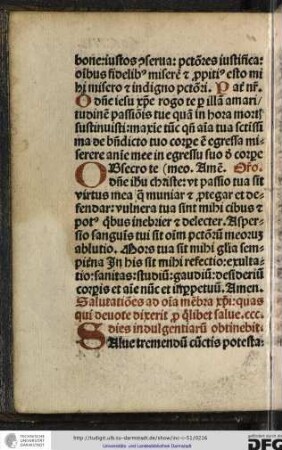 bone: iustos ꝯserua: pctõres iustifica:
oĩbus fidelibꝰ misere⁊ ꝓpitiꝰ esto mi
hi misero ⁊ indigno pctõri. Pať nr̃.
O Dñe iesu xp̃e rogo te ꝑ illã amari/
tudinẽ passiõis tue quã in hora mortꝭ
sustinuisti: maxie tũc qñ aĩa tua sctissi
ma de bñdicto tuo corpe ẽ egressa mi
serere anĩe mee in egressu suo ð corpe
OBsecro te (meo. Amẽ. Oro.
dñe ihu christe: vt passio tua sit
virtus mea q̃ muniar ⁊ ꝓtegar et de
fendar: vulnera tua sint mihi cibus ⁊
potꝰ ꝗbus inebrier ⁊ delecter. Asper/
sio sanguis tui sit oĩm pctõrũ meoruꝫ
ablutio. Mors tua sit mihi gľia sem
piťna In his sit mihi refectio: exulta/
tio: sanitas: studiũ: gaudiũ: desideriũ
corpis et aĩe nũc et inꝑpetuũ. Amen.
Salutatiões ad oĩa mẽbra xp̃i: quas
qui deuote dixerit ꝓ ꝗlibet salue. ccc.
dies indulgentiarũ obtinebit.
SAlue tremendũ cũctis potesta:
http://tudigit.ulb.tu-darmstadt.de/show/inc-i-51/0216
Universitäts- und Landesbibliothek Darmstadt
DFG